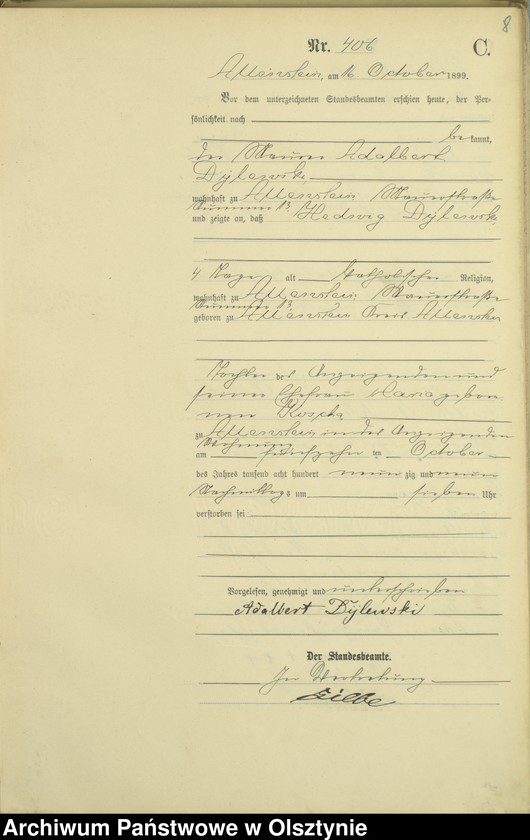 8
Nr. 406 C.
Allenstein, am 16 October 1899.
Vor dem unterzeichneten Standesbeamten erschien heute, der Per-
sönlichkeit nach
bekannt,
der Maurer Adalbert
Dylewski
wohnhaft zu Allenstein Mauerstraße
Nummer 13,
und zeigte an, daß Hedwig Dylewski,
4 Tage alt katholischer Religion,
wohnhaft zu Allenstein Mauerstraße
Nummer 13,
geboren zu Allenstein Kreis Allenstein
Tochter des Anzeigenden und
seiner Ehefrau Maria gebore-
nen Koscha
zu Allenstein in des Anzeigenden
Wohnung
am fünfzehnten October
des Jahres tausend acht hundert neunzig und neun
Nachmittags um sieben Uhr
verstorben sei
Vorgelesen, genehmigt und unterschrieben
Adalbert Dÿlewski
Der Standesbeamte.
In Vertretung
Archiwum Państwowe w Olsztynie